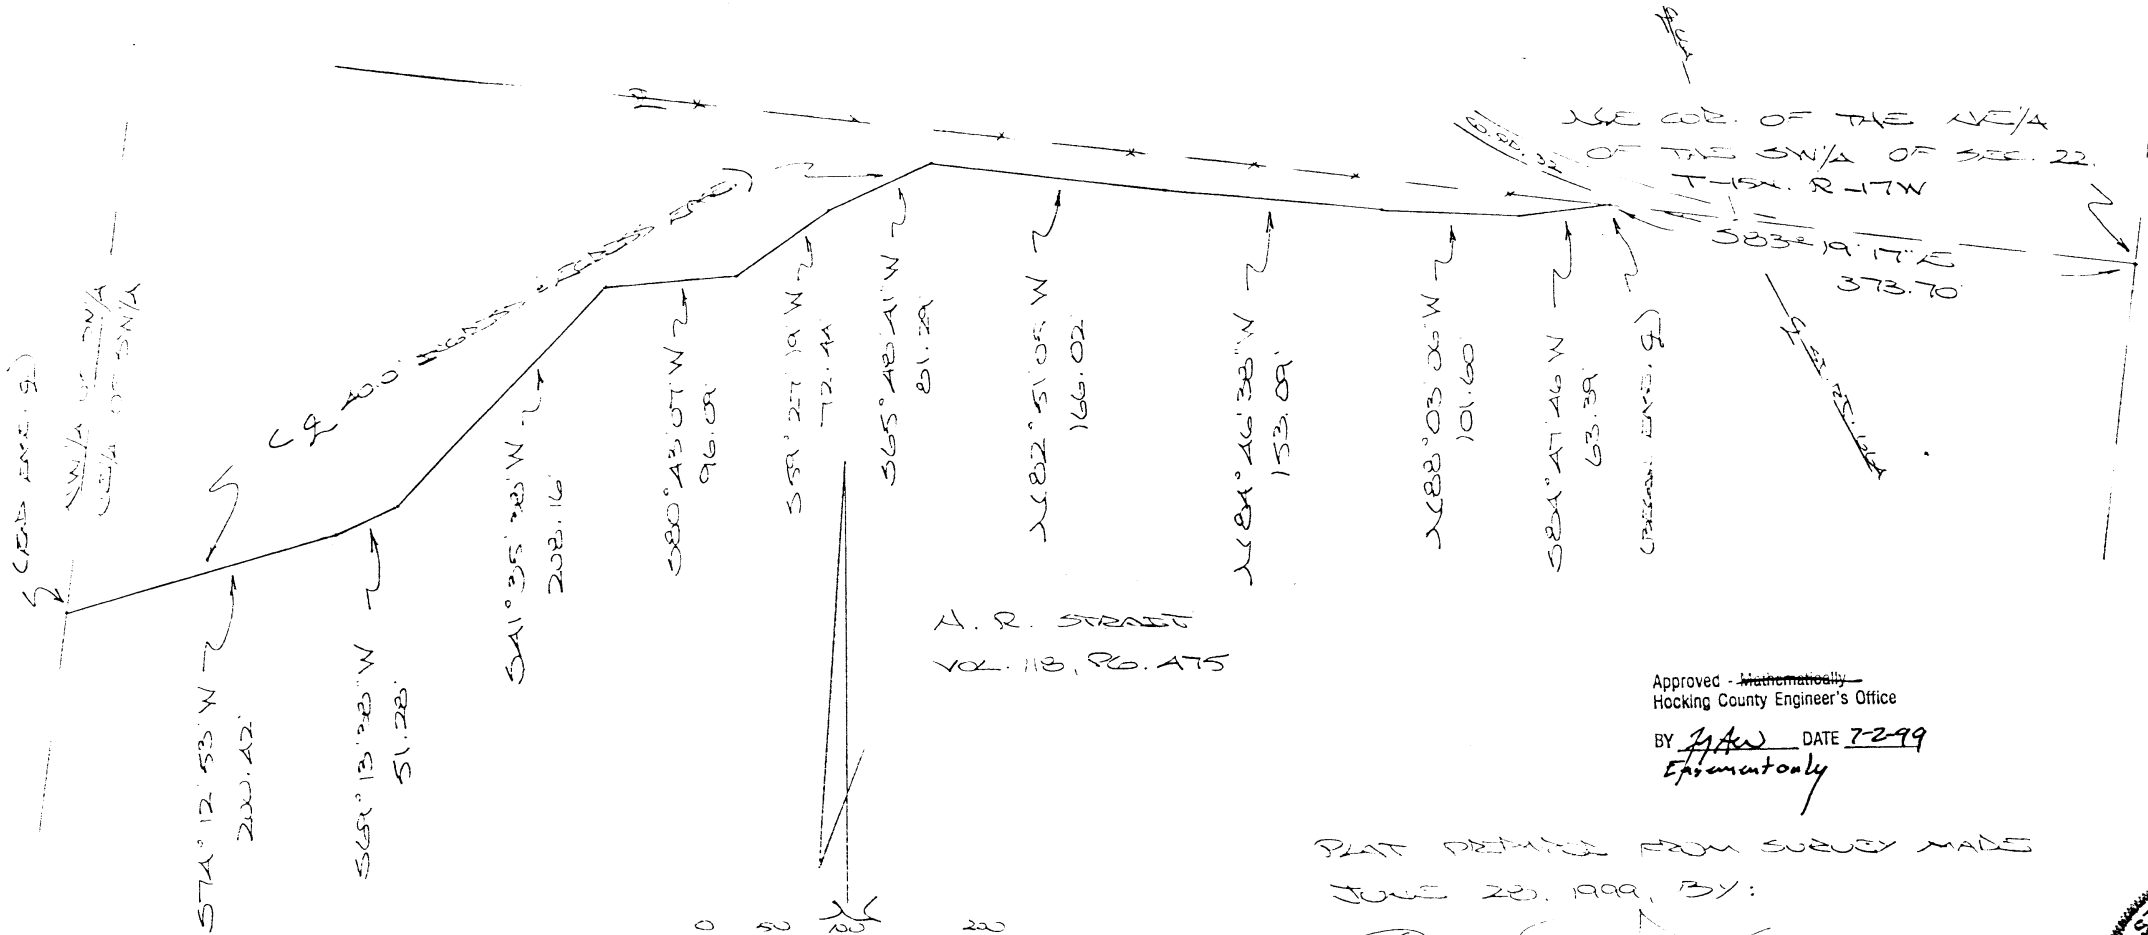 NE COR. OF THE NE/4
OF THE SW/4 OF SEC. 22.
T-15N. R-17W
S83° 19' 17" E
373.70'
(END ESMT. ℄)
NW/4 OF SW/4
NE/4 OF SW/4
(℄ 40.0' INGRESS - EGRESS ESMT.)
S74° 12' 53" W
200.42'
S69° 13' 38" W
51.28'
S41° 35' 38" W
208.16'
S80° 43' 07" W
96.09'
S59° 27' 19" W
72.44'
S65° 48' 41" W
81.29'
N82° 51' 09" W
166.02'
N84° 46' 38" W
153.09'
N88° 03' 06" W
101.60'
S84° 47' 46" W
63.39'
(BEGIN ESMT. ℄)
A. R. STRAIT
VOL. 118, PG. 475
Approved - Mathematically
Hocking County Engineer's Office
BY DATE 7-2-99
Easement only
PLAT PREPARED FROM SURVEY MADE
JUNE 28, 1999, BY:
N
0 50 100 200